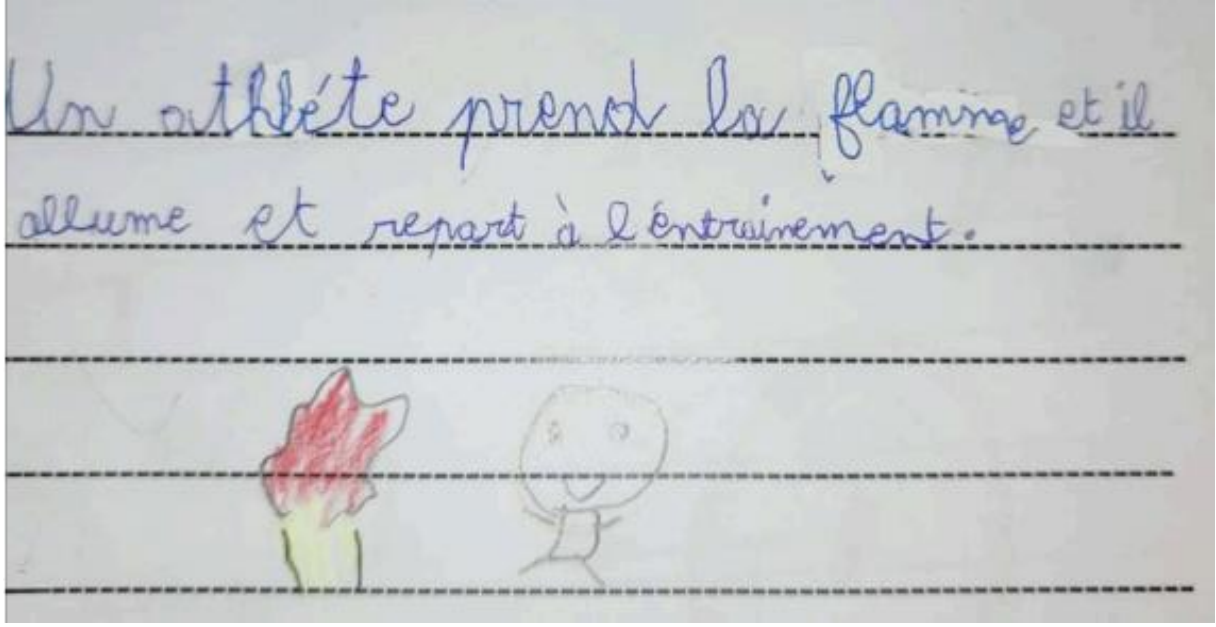 Un athléte prend la flamme et il
allume et repart à l'éntrainement.